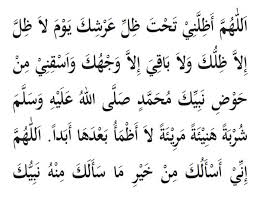 اَللّٰهُمَّ أَظِلَّنِيْ تَحْتَ ظِلِّ عَرْشِكَ يَوْمَ لاَ ظِلَّ
إِلاَّ ظِلُّكَ وَلاَ بَاقِيَ إِلاَّ وَجْهُكَ وَاَسْقِنِيْ مِنْ
حَوْضِ نَبِيِّكَ مُحَمَّدٍ صَلَّى اللهُ عَلَيْهِ وَسَلَّمَ
شُرْبَةً هَنِيْئَةً مَرِيْئَةً لاَ أَظْمَأُ بَعْدَهَا أَبَداً. اَللّٰهُمَّ
إِنِّيْ أَسْأَلُكَ مِنْ خَيْرِ مَا سَأَلَكَ مِنْهُ نَبِيُّكَ